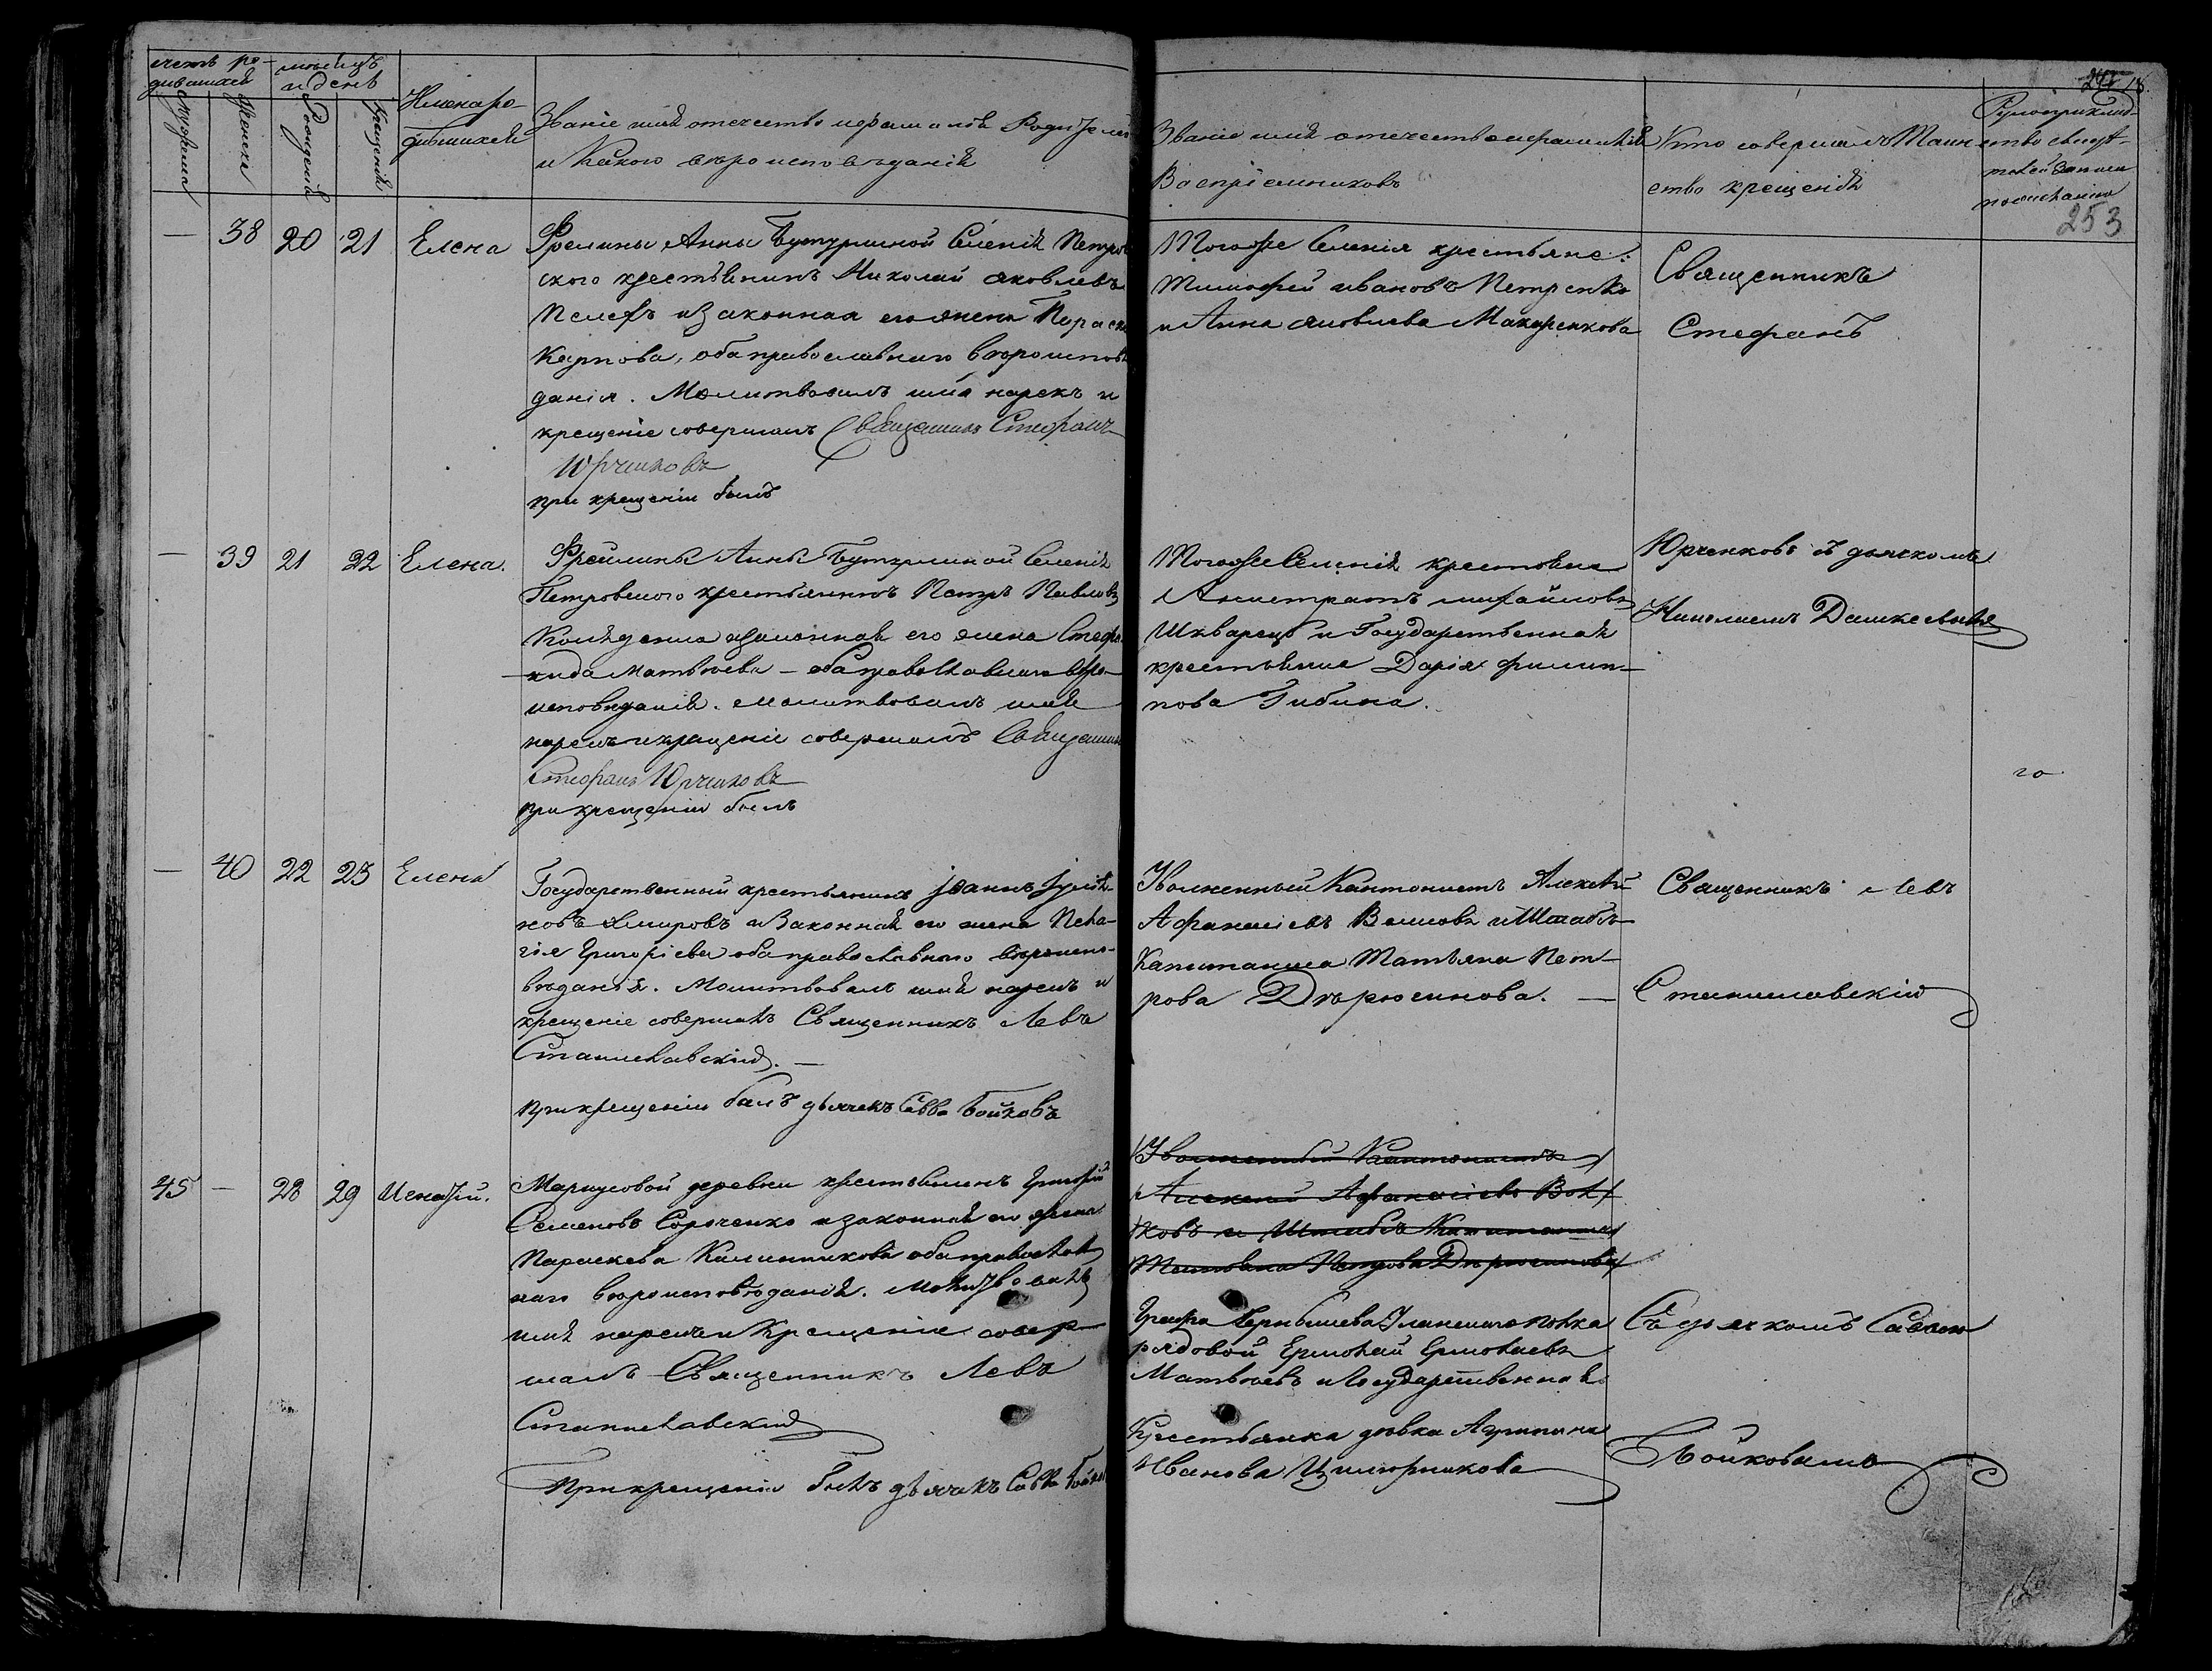 счетъ ро-
дившихся
мѣсяцъ
и день
Имена ро-
дившихся
Мужеска
Женска
Рожденія
Крещенія
Званіе имя отечество и фамилія Родителей
и Какого вѣроисповѣданія
Званіе имя отечество и фамилія
Воспріемниковъ
Кто совершалъ Таин
ство крещенія
Рукоприклад-
ство свидѣ-
телей записи
по желанію
253
— 38 20 21 Елена
Фрелины Анны Бутурлиной Селенія Петров
ского крестьянинъ Николай яковлевъ
и законная его жена Параске
Карпова, оба православнаго вѣроисповѣ
данія. Молитвовалъ имя нарекъ и
крещеніе совершалъ Священникъ Стефанъ
Юрченковъ
при крещеніи былъ
Тогоже Селенія крестьяне:
Тимофей ивановъ Петренко
и Анна яковлева Макаренкова
Священникъ
Стефанъ
— 39 21 22 Елена.
Фрейлины Анны Бутурлиной Селенія
Петровского крестьянинъ Петръ Павловъ
и законная его жена Стефа
нида Матвѣева — оба православнаго вѣро-
исповѣданія. Молитвовалъ имя
нарекъ и крещеніе совершалъ Священникъ
Стефанъ Юрченковъ
при крещеніи былъ
Тогоже Селенія крестьянинъ
Калистратъ михайловъ
Шкварецъ и Государственная
крестьянка Дарія филип-
пова Гибина.
Юрченковъ съ дьячкомъ
Николаемъ Дашкевичемъ
— 40 22 23 Елена
Государственный крестьянинъ Іоаннъ
новъ и Законная его жена Пела-
гія Григоріева оба православнаго вѣроиспо-
вѣданія. Молитвовалъ имя нарекъ и
крещеніе совершалъ Священникъ Левъ
Станиславскій. —
При крещеніи былъ дьячекъ Савва Бойковъ
Уволненный Кантонистъ Алексѣй
Афанасіевъ Волковъ и Штабъ-
Капитанша Татьяна Пет-
рова Дѣрюгинова. —
Священникъ Левъ
Станиславскій
45 — 28 29 Игнатій.
Маркусовой деревни крестьянинъ Григорій
Семеновъ Сороченко и законная его жена
Параскева Калинникова оба православ
наго вѣроисповѣданія. Молитвовалъ
имя нарекъ и Крещеніе совер-
шалъ Священникъ Левъ
Станиславскій
При крещеніи былъ дьячекъ Савва Бойко
Уволненный Кантонистъ
Алексей Афанасіевъ Вол
ковъ и Штабъ Капитанша
Татьяна Петрова Дѣрюгинова
Графа Чернышева Уланского полка
рядовой Ермолай Ермолаевъ
Матвѣевъ и Государственная
Крестьянка дѣвка Агрипина
Иванова Цилюрникова
Съ дьячкомъ Саввою
Бойковымъ